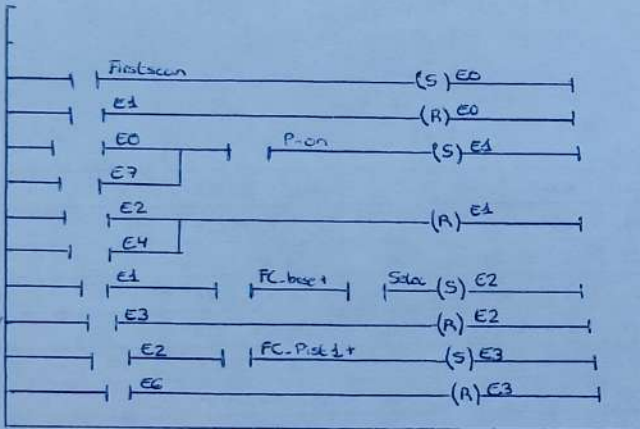 Firstscan (S) E0
E1 (R) E0
E0 P-on (S) E1
E7
E2 (R) E1
E4
E1 FC-base+ (S) E2
E3 (R) E2
E2 FC-Pist 1+ (S) E3
E6 (R) E3